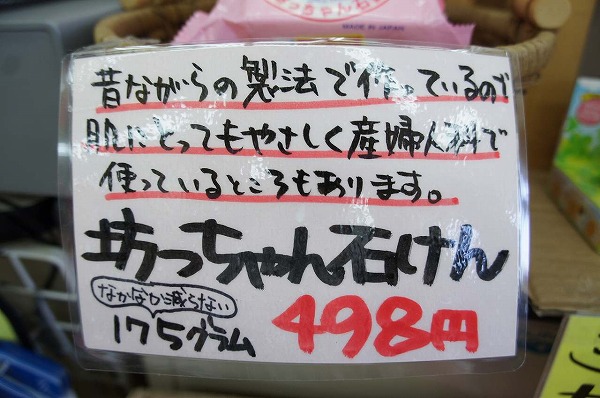 MADE IN JAPAN
昔ながらの製法で作っているので
肌にとってもやさしく産婦人科で
使っているところもあります。
坊っちゃん石けん
なかなか減らない
175グラム
498円